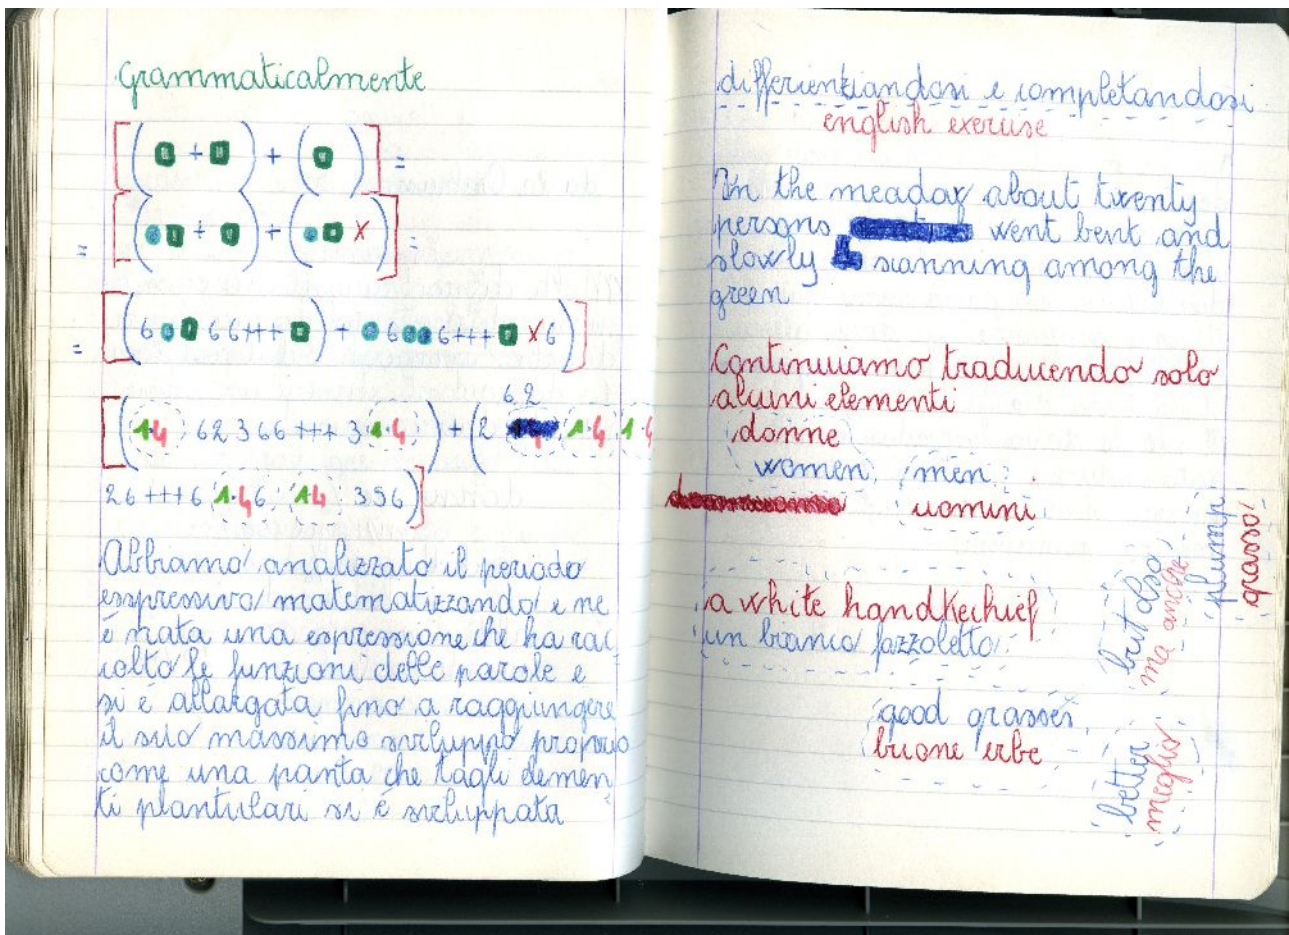 Grammaticalmente
[( + ) + ( )] =
= [( + ) + ( X)] =
= [(6 66+++ ) + 6 6+++ X6)]
62
[(1·4 62366+++31·4) + (2 1·4 1·4
26+++6 1·46 1·4 356)]
Abbiamo analizzato il periodo
espressivo matematizzando e ne
è nata una espressione che ha rac
colto le funzioni delle parole e
si è allargata fino a raggiungere
il suo massimo sviluppo proprio
come una panta che tagli elemen
ti plantulari si è sviluppata
differienziandosi e completandosi
english exercise
In the meadox about twenty
persons went bent and
slowly scanning among the
green
Continuiamo traducendo solo
alcuni elementi
donne
women men
uomini
a white handkechief
un bianco fazzoletto
good grasses
buone erbe
plump
grasso
but also
ma anche
better
meglio